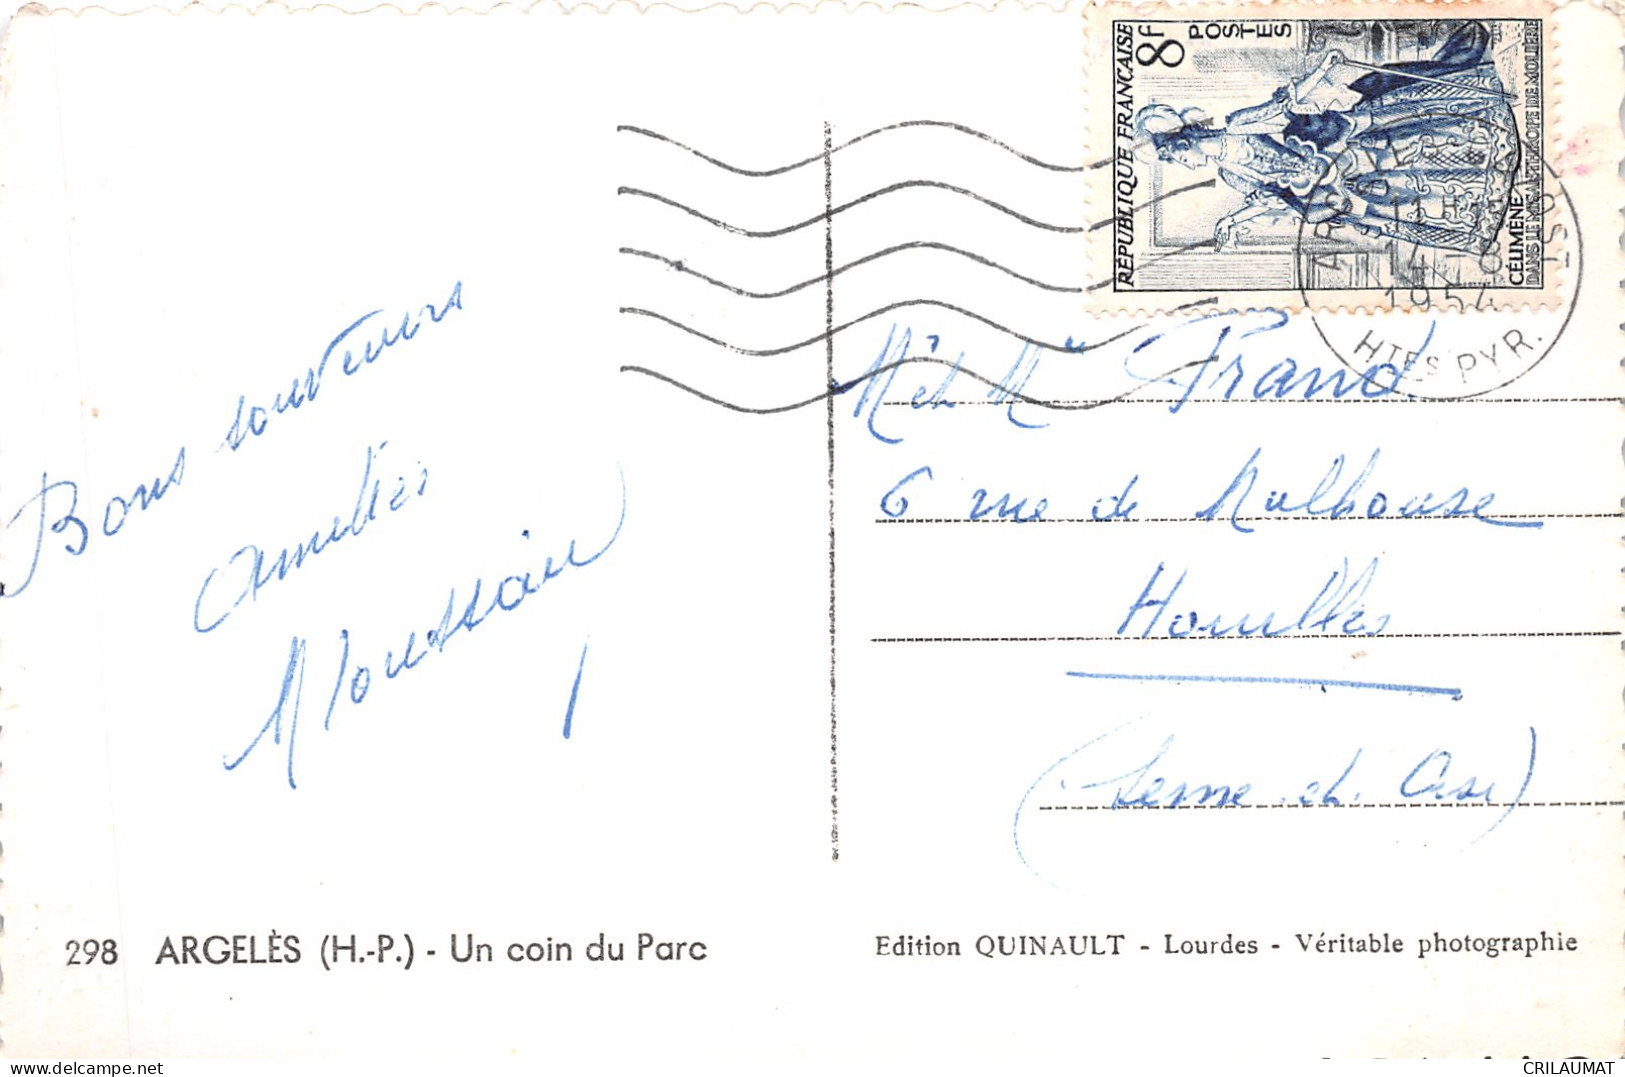 RÉPUBLIQUE FRANÇAISE
8F
POSTES
CÉLIMÈNE
DANS LE MISANTHROPE DE MOLIÈRE
11 H
14
1954
HTES PYR.
Bons souvenirs
Amitiés
Mr et Mme Frand
6 rue de Mulhouse
Houilles
(Seine et Oise)
298 ARGELÈS (H.-P.) - Un coin du Parc
Edition QUINAULT - Lourdes - Véritable photographie
CRILAUMAT